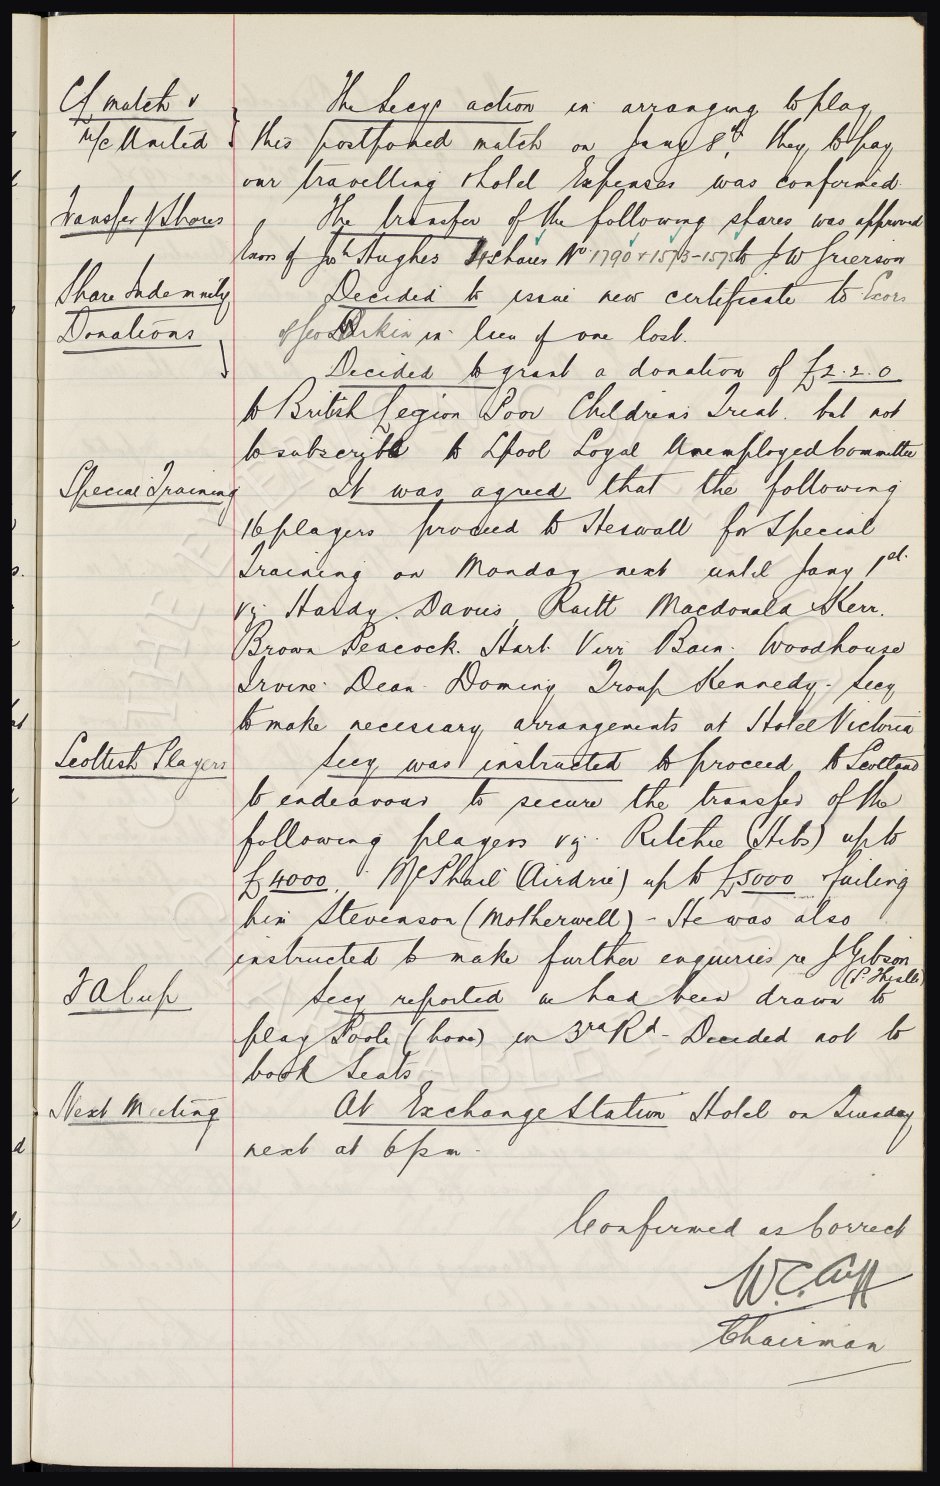 CL match v
M/c United
The Secys action in arranging to play
this postponed match on Jany 8th, they to pay
our travelling & hotel Expenses was confirmed.
Transfer of Shares
The transfer of the following shares was approved
Exors of Jos'h Hughes 4 shares No 1790 & 1573-1575 to J.W Grierson
Share Indemnity
Decided to issue new certificate to Exors
of Geo Larkin in lieu of one lost.
Donations
Decided to grant a donation of £2.2.0
to British Legion Poor Childrens Treat. but not
to subscribe to Lpool Loyal Unemployed Committee
Special Training
It was agreed that the following
16 players proceed to Heswall for Special
Training on Monday next until Jany 1st.
vz. Hardy. Davies, Raitt Macdonald Kerr.
Brown Peacock. Hart. Virr Bain. Woodhouse
Irvine. Dean. Dominy Troup Kennedy - Secy
to make necessary arrangements at Hotel Victoria
Scottish Players
Secy was instructed to proceed to Scotland
to endeavour to secure the transfer of the
following players vz. Ritchie (Hibs) up to
£4000. McPhail (Airdrie) up to £5000 failing
him Stevenson (Motherwell) - He was also
instructed to make further enquiries re J Gibson
(P. Thistle)
F A Cup
Secy reported we had been drawn to
play Poole (home) in 3rd Rd - Decided not to
book Seats
Next Meeting
At Exchange Station Hotel on Tuesday
next at 6 pm.
Confirmed as Correct
W.C. Cuff
Chairman